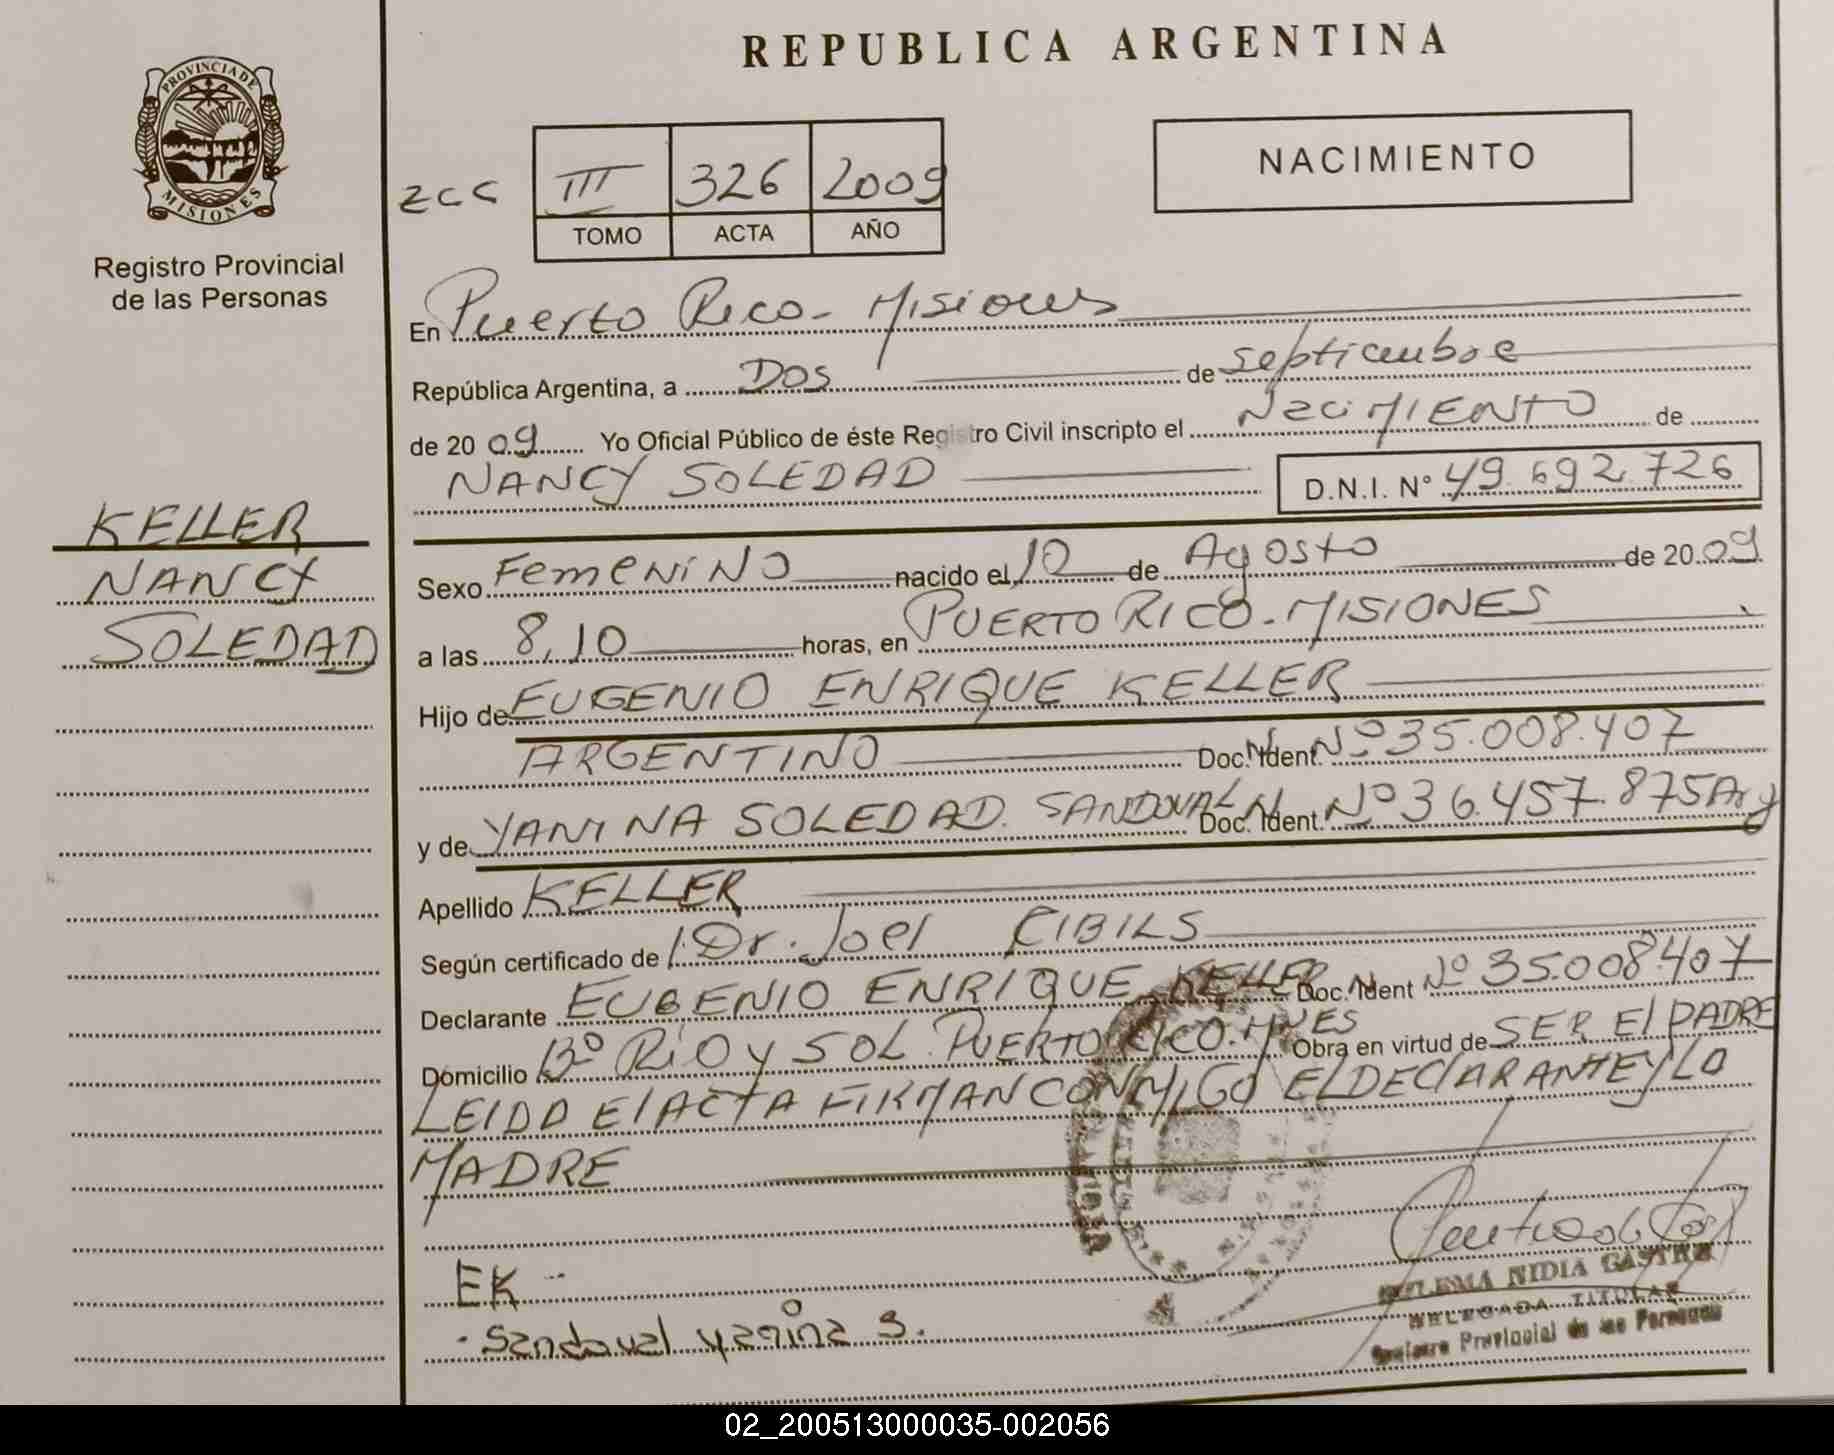 REPUBLICA ARGENTINA
PROVINCIA DE
MISIONES
Registro Provincial
de las Personas
NACIMIENTO
III 326 2009
TOMO ACTA AÑO
En Puerto Rico - Misiones
República Argentina, a Dos de septiembre
de 2009 Yo Oficial Público de éste Registro Civil inscripto el NaciMIENTO de
NANCY SOLEDAD D.N.I. N° 49.692.726
KELLER
NANCY
SOLEDAD
Sexo FemeNiNO nacido el 10 de Agosto de 2009
a las 8,10 horas, en PUERTO RICO - MISIONES
Hijo de EUGENIO ENRIQUE KELLER
ARGENTINO Doc. N. Ident. Nº 35.008.407
y de YANINA SOLEDAD SANDOVAL Doc. N. Ident. Nº 36.457.875 Arg
Apellido KELLER
Según certificado de Dr. Joel CIBILS
Declarante EUGENIO ENRIQUE KELLER Doc. N. Ident Nº 35.008.407
Domicilio Bº RIO y SOL. PUERTO RICO. Obra en virtud de SER El PADRE
LEIDO El ACTA FIRMAN CONMIGO EL DEClARANTE y LO
MADRE
EK
Sandoval yanina S.
NIDIA
DELEGADA TITULAR
Registro Provincial de las Personas
02_200513000035-002056